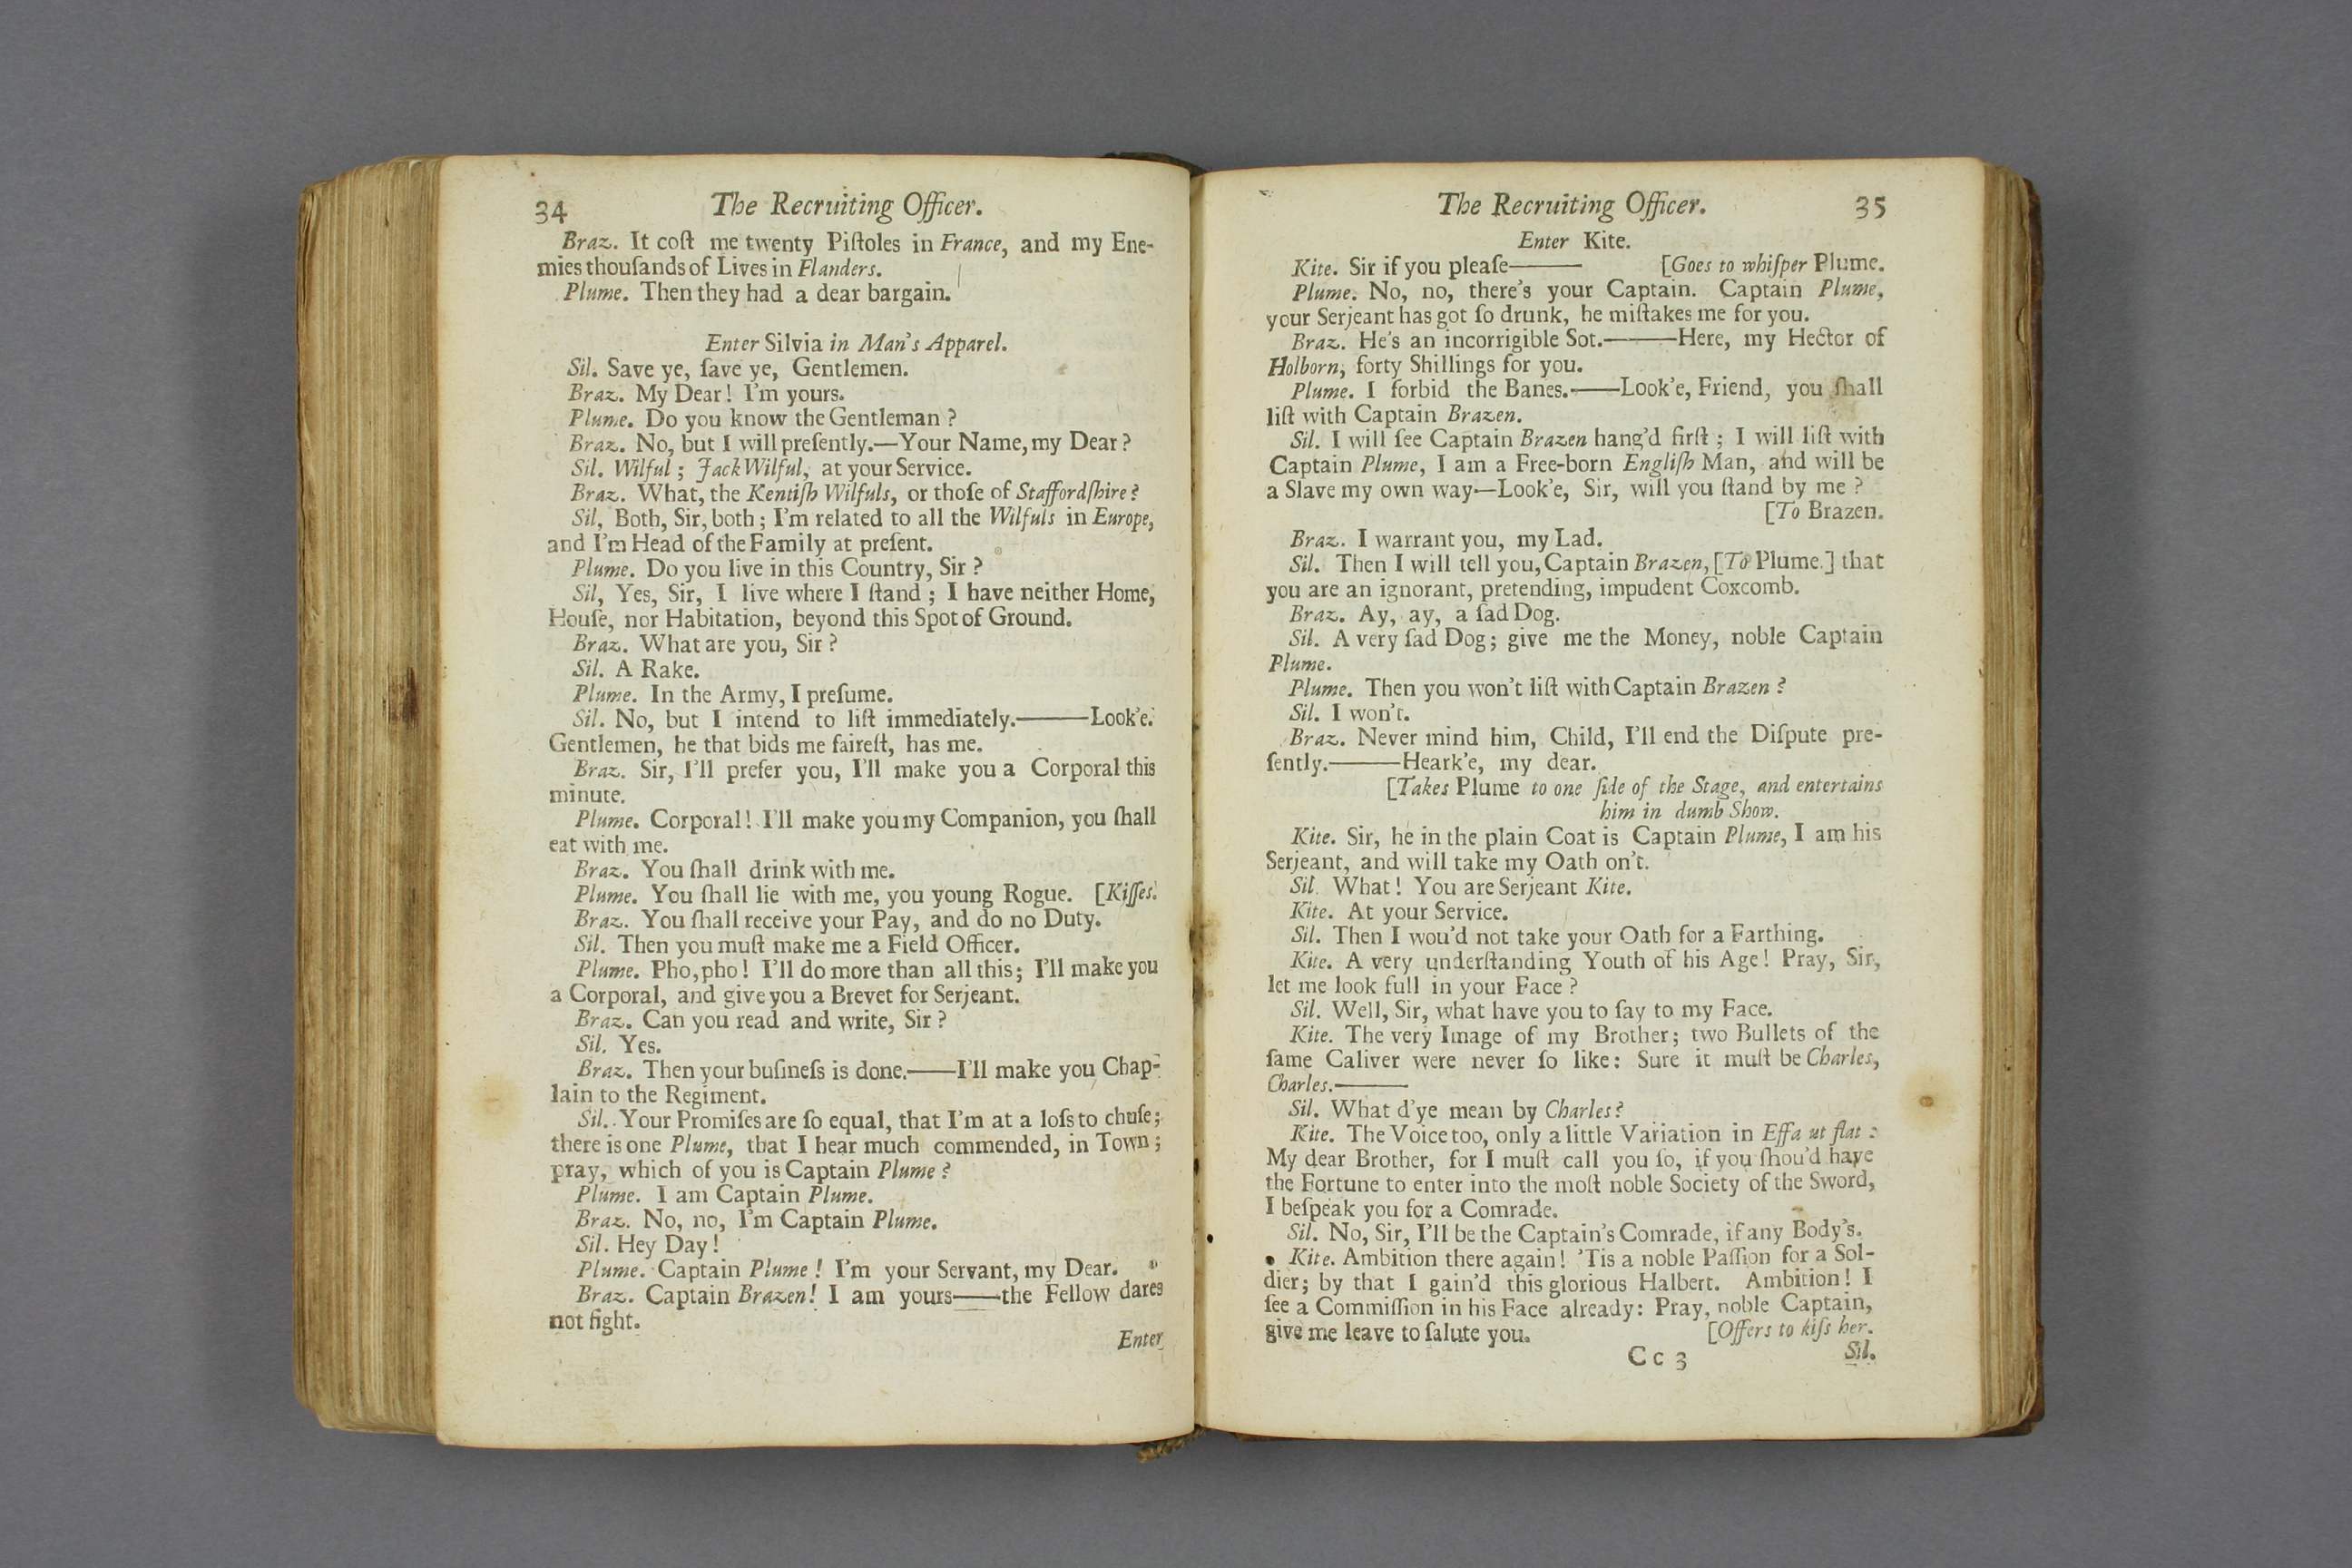 34 The Recruiting Officer.
Braz. It coſt me twenty Piſtoles in France, and my Ene-
mies thouſands of Lives in Flanders.
Plume. Then they had a dear bargain.
Enter Silvia in Man's Apparel.
Sil. Save ye, ſave ye, Gentlemen.
Braz. My Dear! I'm yours.
Plume. Do you know the Gentleman?
Braz. No, but I will preſently.—Your Name, my Dear?
Sil. Wilful; Jack Wilful, at your Service.
Braz. What, the Kentiſh Wilfuls, or thoſe of Staffordſhire?
Sil, Both, Sir, both; I'm related to all the Wilfuls in Europe,
and I'm Head of the Family at preſent.
Plume. Do you live in this Country, Sir?
Sil, Yes, Sir, I live where I ſtand; I have neither Home,
Houſe, nor Habitation, beyond this Spot of Ground.
Braz. What are you, Sir?
Sil. A Rake.
Plume. In the Army, I preſume.
Sil. No, but I intend to liſt immediately.——Look'e.
Gentlemen, he that bids me faireſt, has me.
Braz. Sir, I'll prefer you, I'll make you a Corporal this
minute.
Plume. Corporal! I'll make you my Companion, you ſhall
eat with me.
Braz. You ſhall drink with me.
Plume. You ſhall lie with me, you young Rogue. [Kiſſes.
Braz. You ſhall receive your Pay, and do no Duty.
Sil. Then you muſt make me a Field Officer.
Plume. Pho, pho! I'll do more than all this; I'll make you
a Corporal, and give you a Brevet for Serjeant.
Braz. Can you read and write, Sir?
Sil. Yes.
Braz. Then your buſineſs is done.——I'll make you Chap-
lain to the Regiment.
Sil. Your Promiſes are ſo equal, that I'm at a loſs to chuſe;
there is one Plume, that I hear much commended, in Town;
pray, which of you is Captain Plume?
Plume. I am Captain Plume.
Braz. No, no, I'm Captain Plume.
Sil. Hey Day!
Plume. Captain Plume! I'm your Servant, my Dear.
Braz. Captain Brazen! I am yours——the Fellow dares
not fight.
Enter
The Recruiting Officer. 35
Enter Kite.
Kite. Sir if you pleaſe—— [Goes to whiſper Plume.
Plume. No, no, there's your Captain. Captain Plume,
your Serjeant has got ſo drunk, he miſtakes me for you.
Braz. He's an incorrigible Sot.——Here, my Hector of
Holborn, forty Shillings for you.
Plume. I forbid the Banes.——Look'e, Friend, you ſhall
liſt with Captain Brazen.
Sil. I will ſee Captain Brazen hang'd firſt; I will liſt with
Captain Plume, I am a Free-born Engliſh Man, and will be
a Slave my own way—Look'e, Sir, will you ſtand by me?
[To Brazen.
Braz. I warrant you, my Lad.
Sil. Then I will tell you, Captain Brazen, [To Plume.] that
you are an ignorant, pretending, impudent Coxcomb.
Braz. Ay, ay, a ſad Dog.
Sil. A very ſad Dog; give me the Money, noble Captain
Plume.
Plume. Then you won't liſt with Captain Brazen?
Sil. I won't.
Braz. Never mind him, Child, I'll end the Diſpute pre-
ſently.——Heark'e, my dear.
[Takes Plume to one ſide of the Stage, and entertains
him in dumb Show.
Kite. Sir, he in the plain Coat is Captain Plume, I am his
Serjeant, and will take my Oath on't.
Sil. What! You are Serjeant Kite.
Kite. At your Service.
Sil. Then I wou'd not take your Oath for a Farthing.
Kite. A very underſtanding Youth of his Age! Pray, Sir,
let me look full in your Face?
Sil. Well, Sir, what have you to ſay to my Face.
Kite. The very Image of my Brother; two Bullets of the
ſame Caliver were never ſo like: Sure it muſt be Charles,
Charles.——
Sil. What d'ye mean by Charles?
Kite. The Voice too, only a little Variation in Effa ut flat:
My dear Brother, for I muſt call you ſo, if you ſhou'd have
the Fortune to enter into the moſt noble Society of the Sword,
I beſpeak you for a Comrade.
Sil. No, Sir, I'll be the Captain's Comrade, if any Body's.
Kite. Ambition there again! 'Tis a noble Paſſion for a Sol-
dier; by that I gain'd this glorious Halbert. Ambition! I
ſee a Commiſſion in his Face already: Pray, noble Captain,
give me leave to ſalute you. [Offers to kiſs her.
Cc 3 Sil.